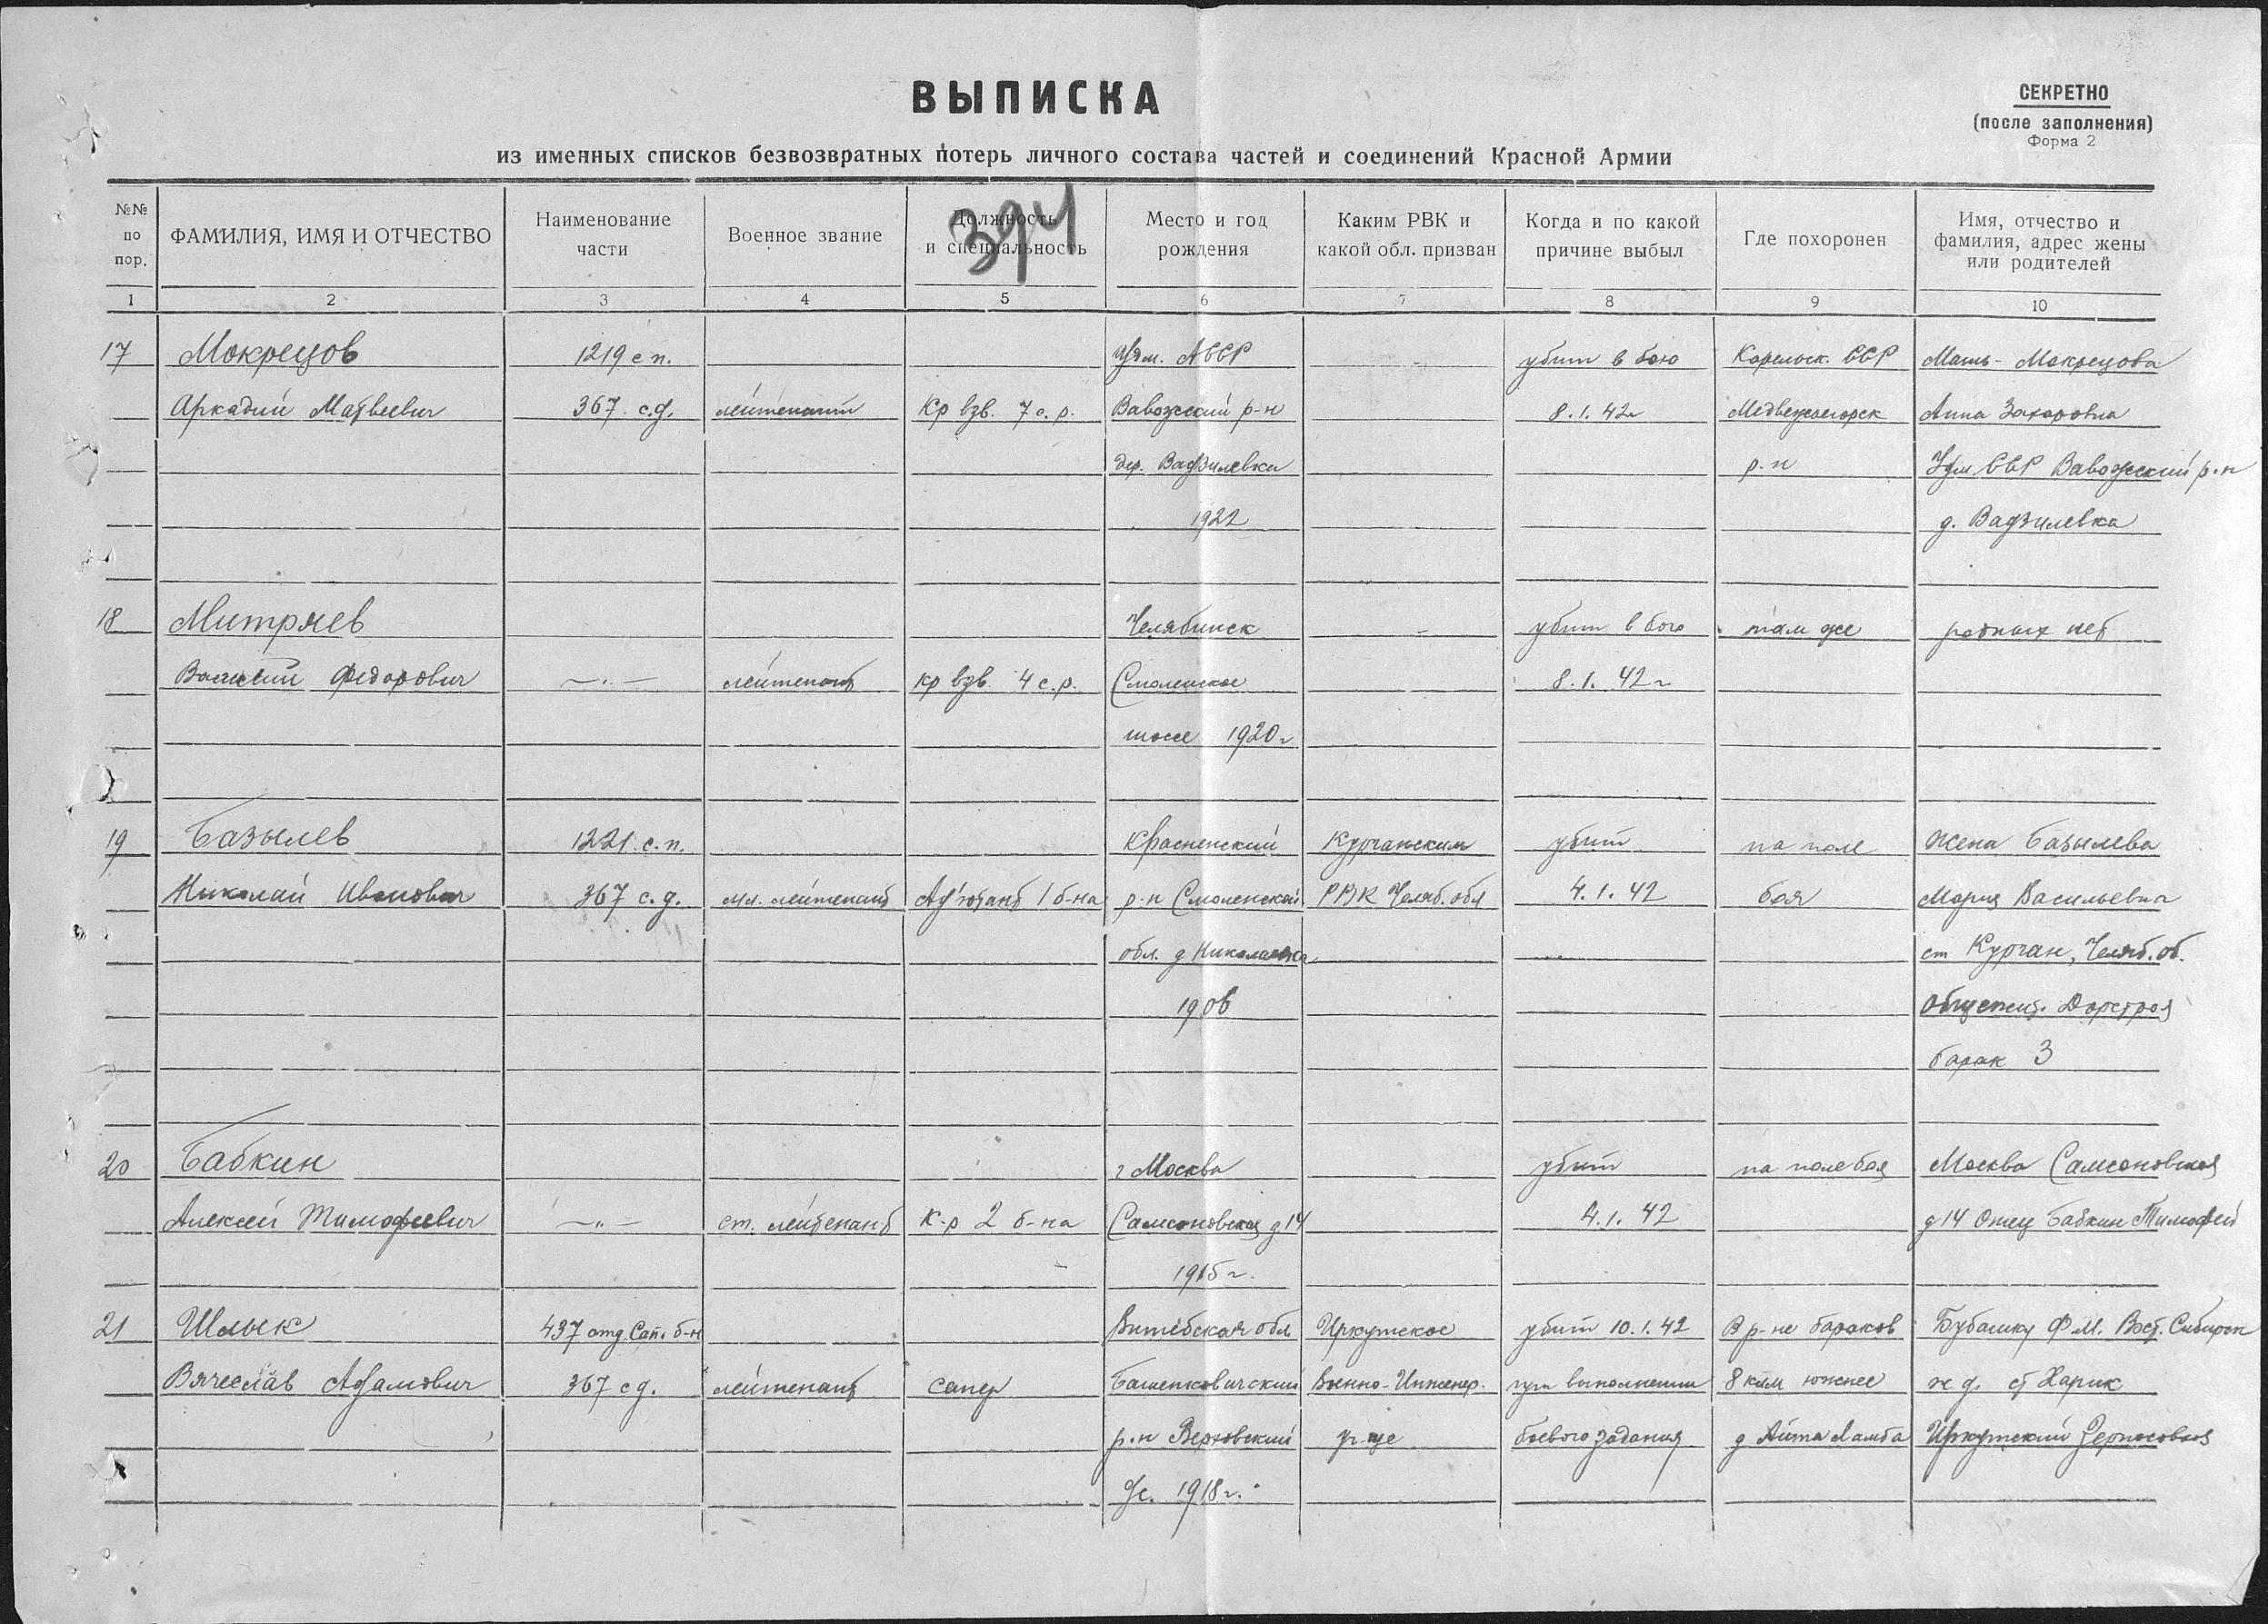 ВЫПИСКА
СЕКРЕТНО
(после заполнения)
Форма 2
из именных списков безвозвратных потерь личного состава частей и соединений Красной Армии
394
№№ по пор. | ФАМИЛИЯ, ИМЯ И ОТЧЕСТВО | Наименование части | Военное звание | Должность и специальность | Место и год рождения | Каким РВК и какой обл. призван | Когда и по какой причине выбыл | Где похоронен | Имя, отчество и фамилия, адрес жены или родителей
1 2 3 4 5 6 7 8 9 10
17 Мокрецов 1219 с п. Удм. АССР убит в бою Карельск. ССР Мать - Мокрецова
Аркадий Матвеевич 367 с.д. лейтенант Кр взв. 7 с. р. Вавожский р-н 8.1.42г Медвежьегорск Анна Захаровна
дер. Вадзилевка р.н Удм. ССР Вавожский р-н
1922 д. Вадзилевка
18 Митряев Челябинск убит в бою там же родных нет
Василий Федорович —„— лейтенант кр взв. 4 с.р. Смоленское 8.1.42г
шоссе 1920г
19 Базылев 1221 с.п. Красненский Курганским убит на поле жена Базылева
Николай Иванович 367 с.д. мл. лейтенант Ад'ютант 1 б-на р-н Смоленской РВК Челяб. обл 4.1.42 боя Мария Васильевна
обл. д Николаевка ст Курган, Челяб. об.
1906 Общежит. Дорстроя
барак 3
20 Бабкин г Москва убит на поле боя Москва Самсоновская
Алексей Тимофеевич —„— ст. лейтенант К-р 2 б-на Самсоновская д 14 4.1.42 д 14 Отец Бабкин Тимофей
1915 г.
21 Шлык 437 отд. Сап. б-н Витебская обл Иркутское убит 10.1.42 В р-не бараков Бубашку Ф М. Вост. Сибирск
Вячеслав Адамович 367 сд. лейтенант сапер Бешенковичский Военно-Инженер. при выполнении 8 клм южнее ж д. ст Харик
р.н Верховский уч-ще боевого задания д Айта Ламба Иркутский Зерносовхоз
с. 1918 г.